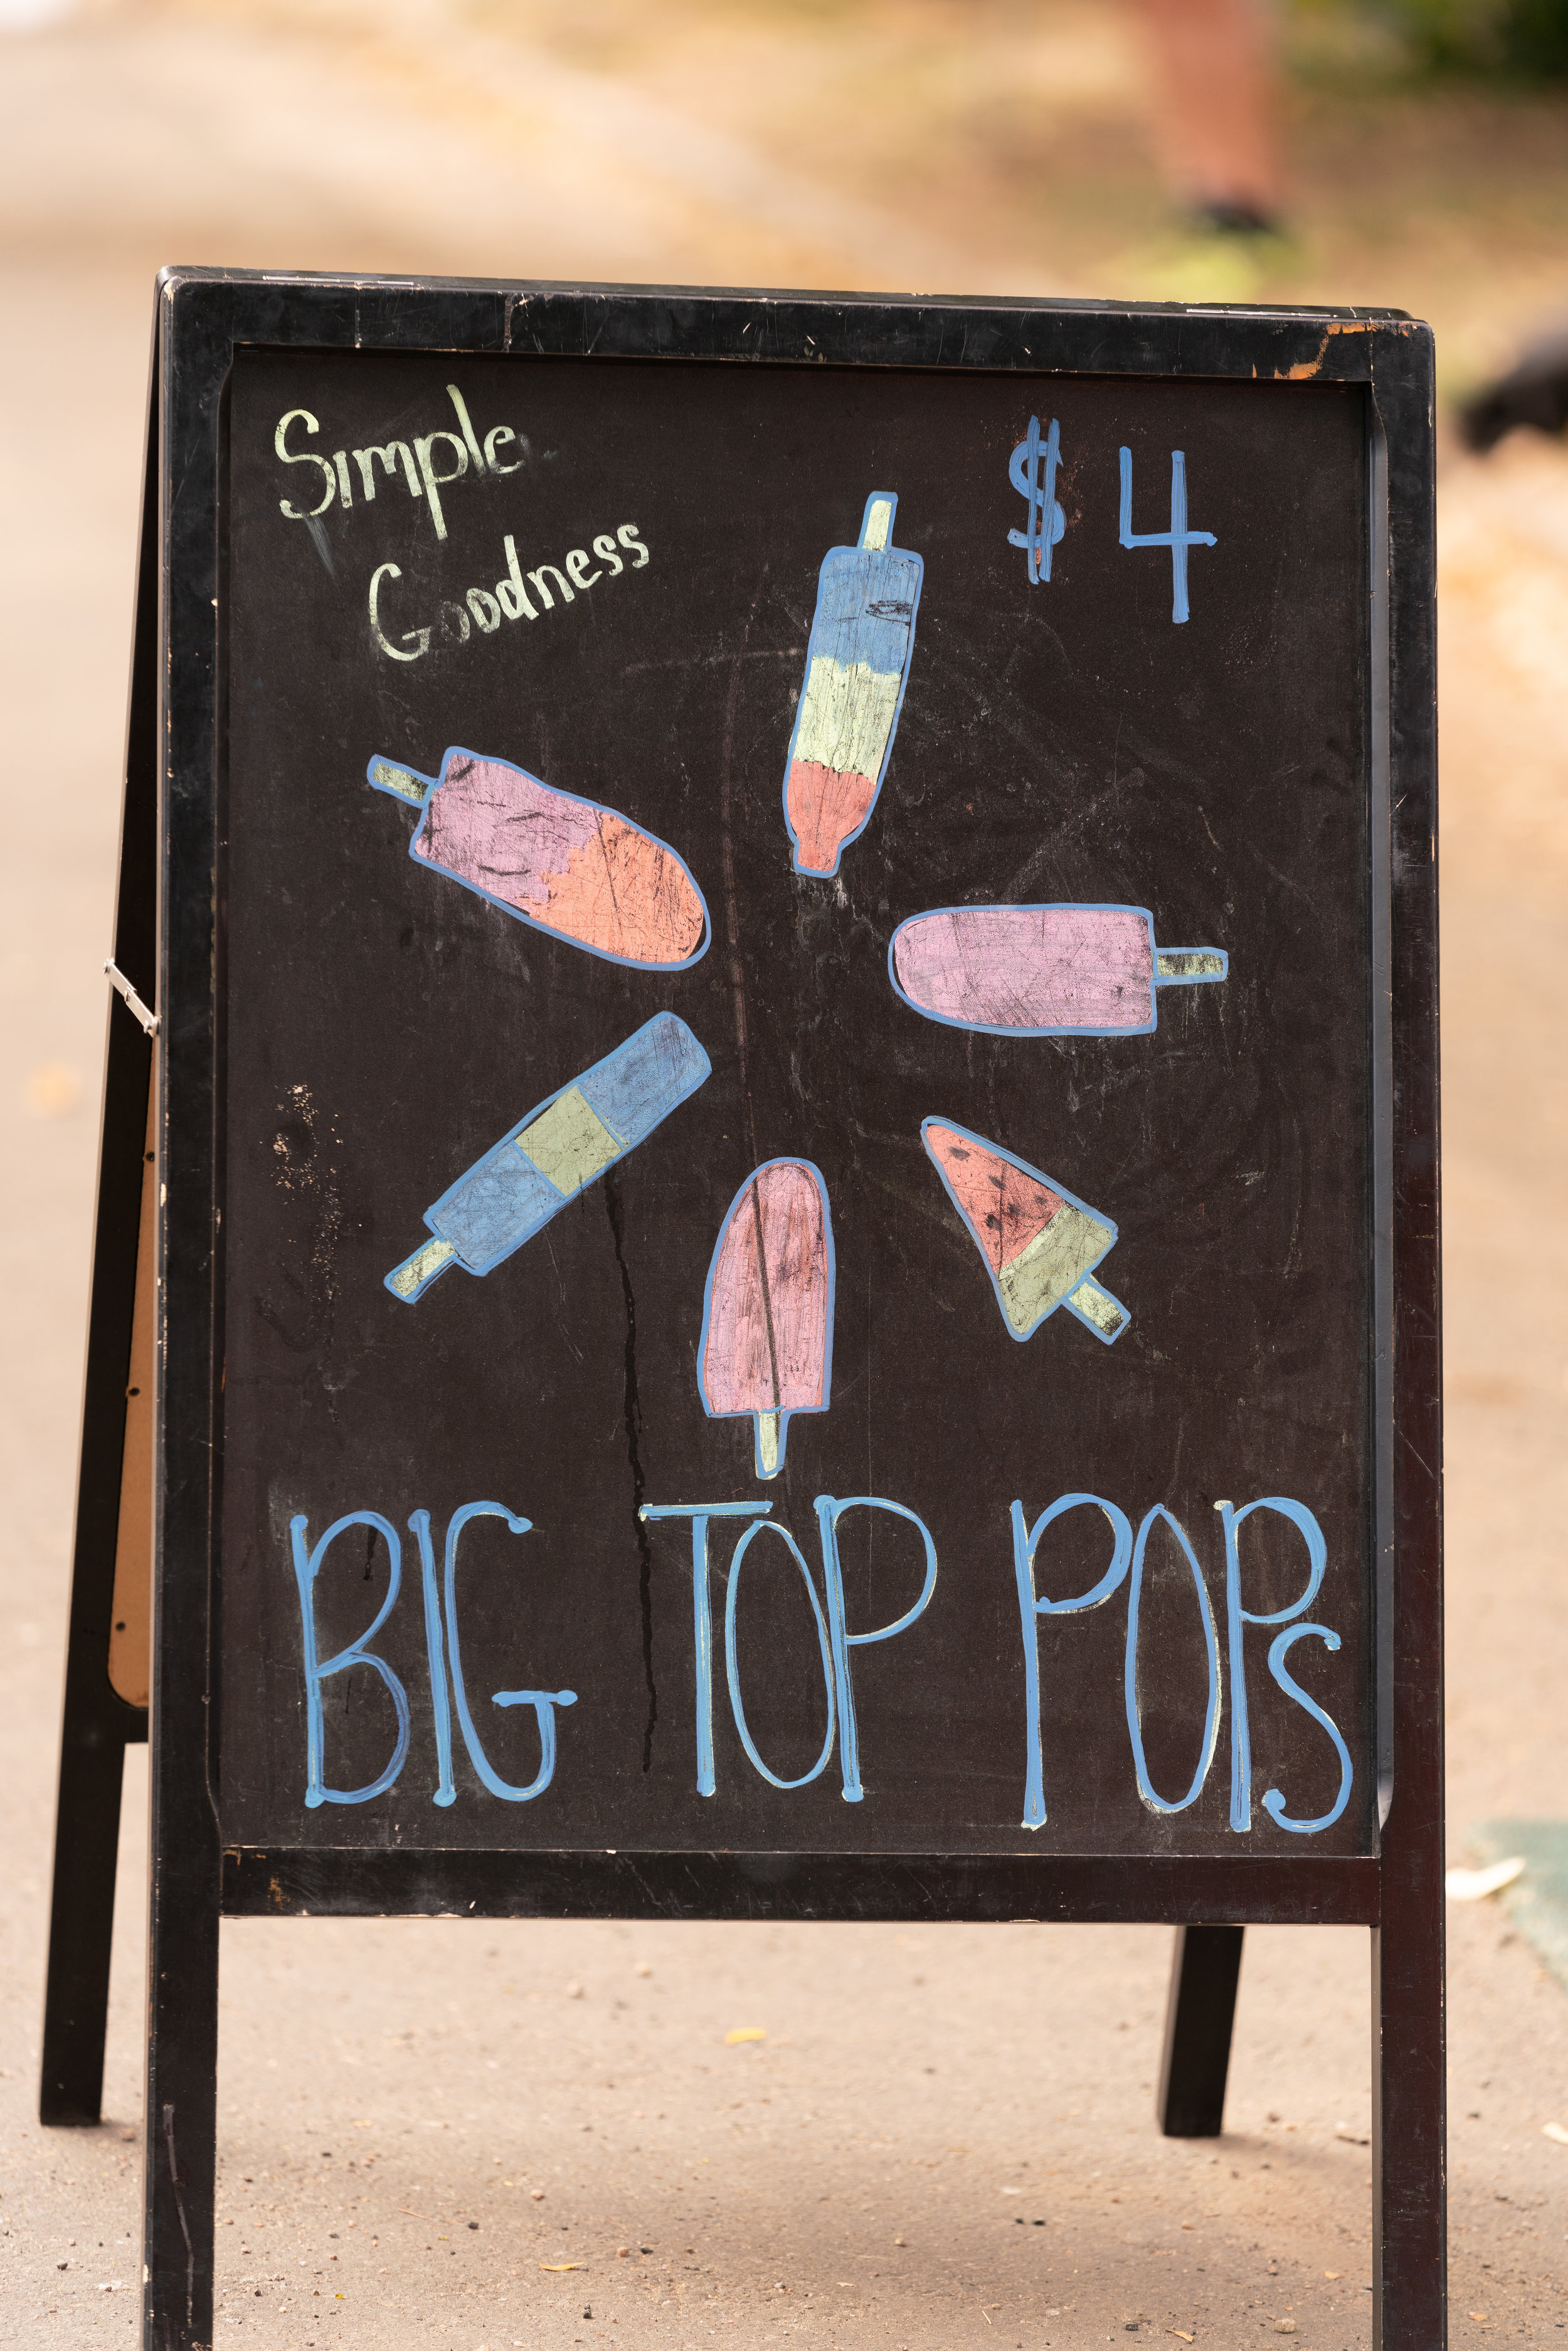 Simple
Goodness
$4
BIG TOP POPs